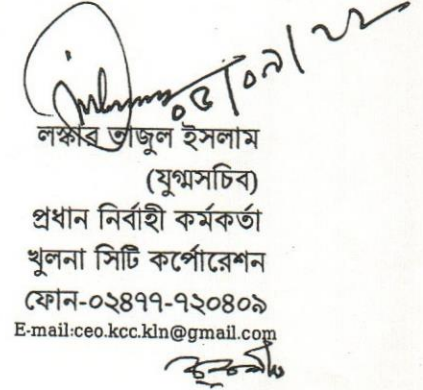 ০৫/০৯/২২
লস্কার তাজুল ইসলাম
(যুগ্মসচিব)
প্রধান নির্বাহী কর্মকর্তা
খুলনা সিটি কর্পোরেশন
ফোন-০২৪৭৭-৭২০৪০৯
E-mail:ceo.kcc.kln@gmail.com